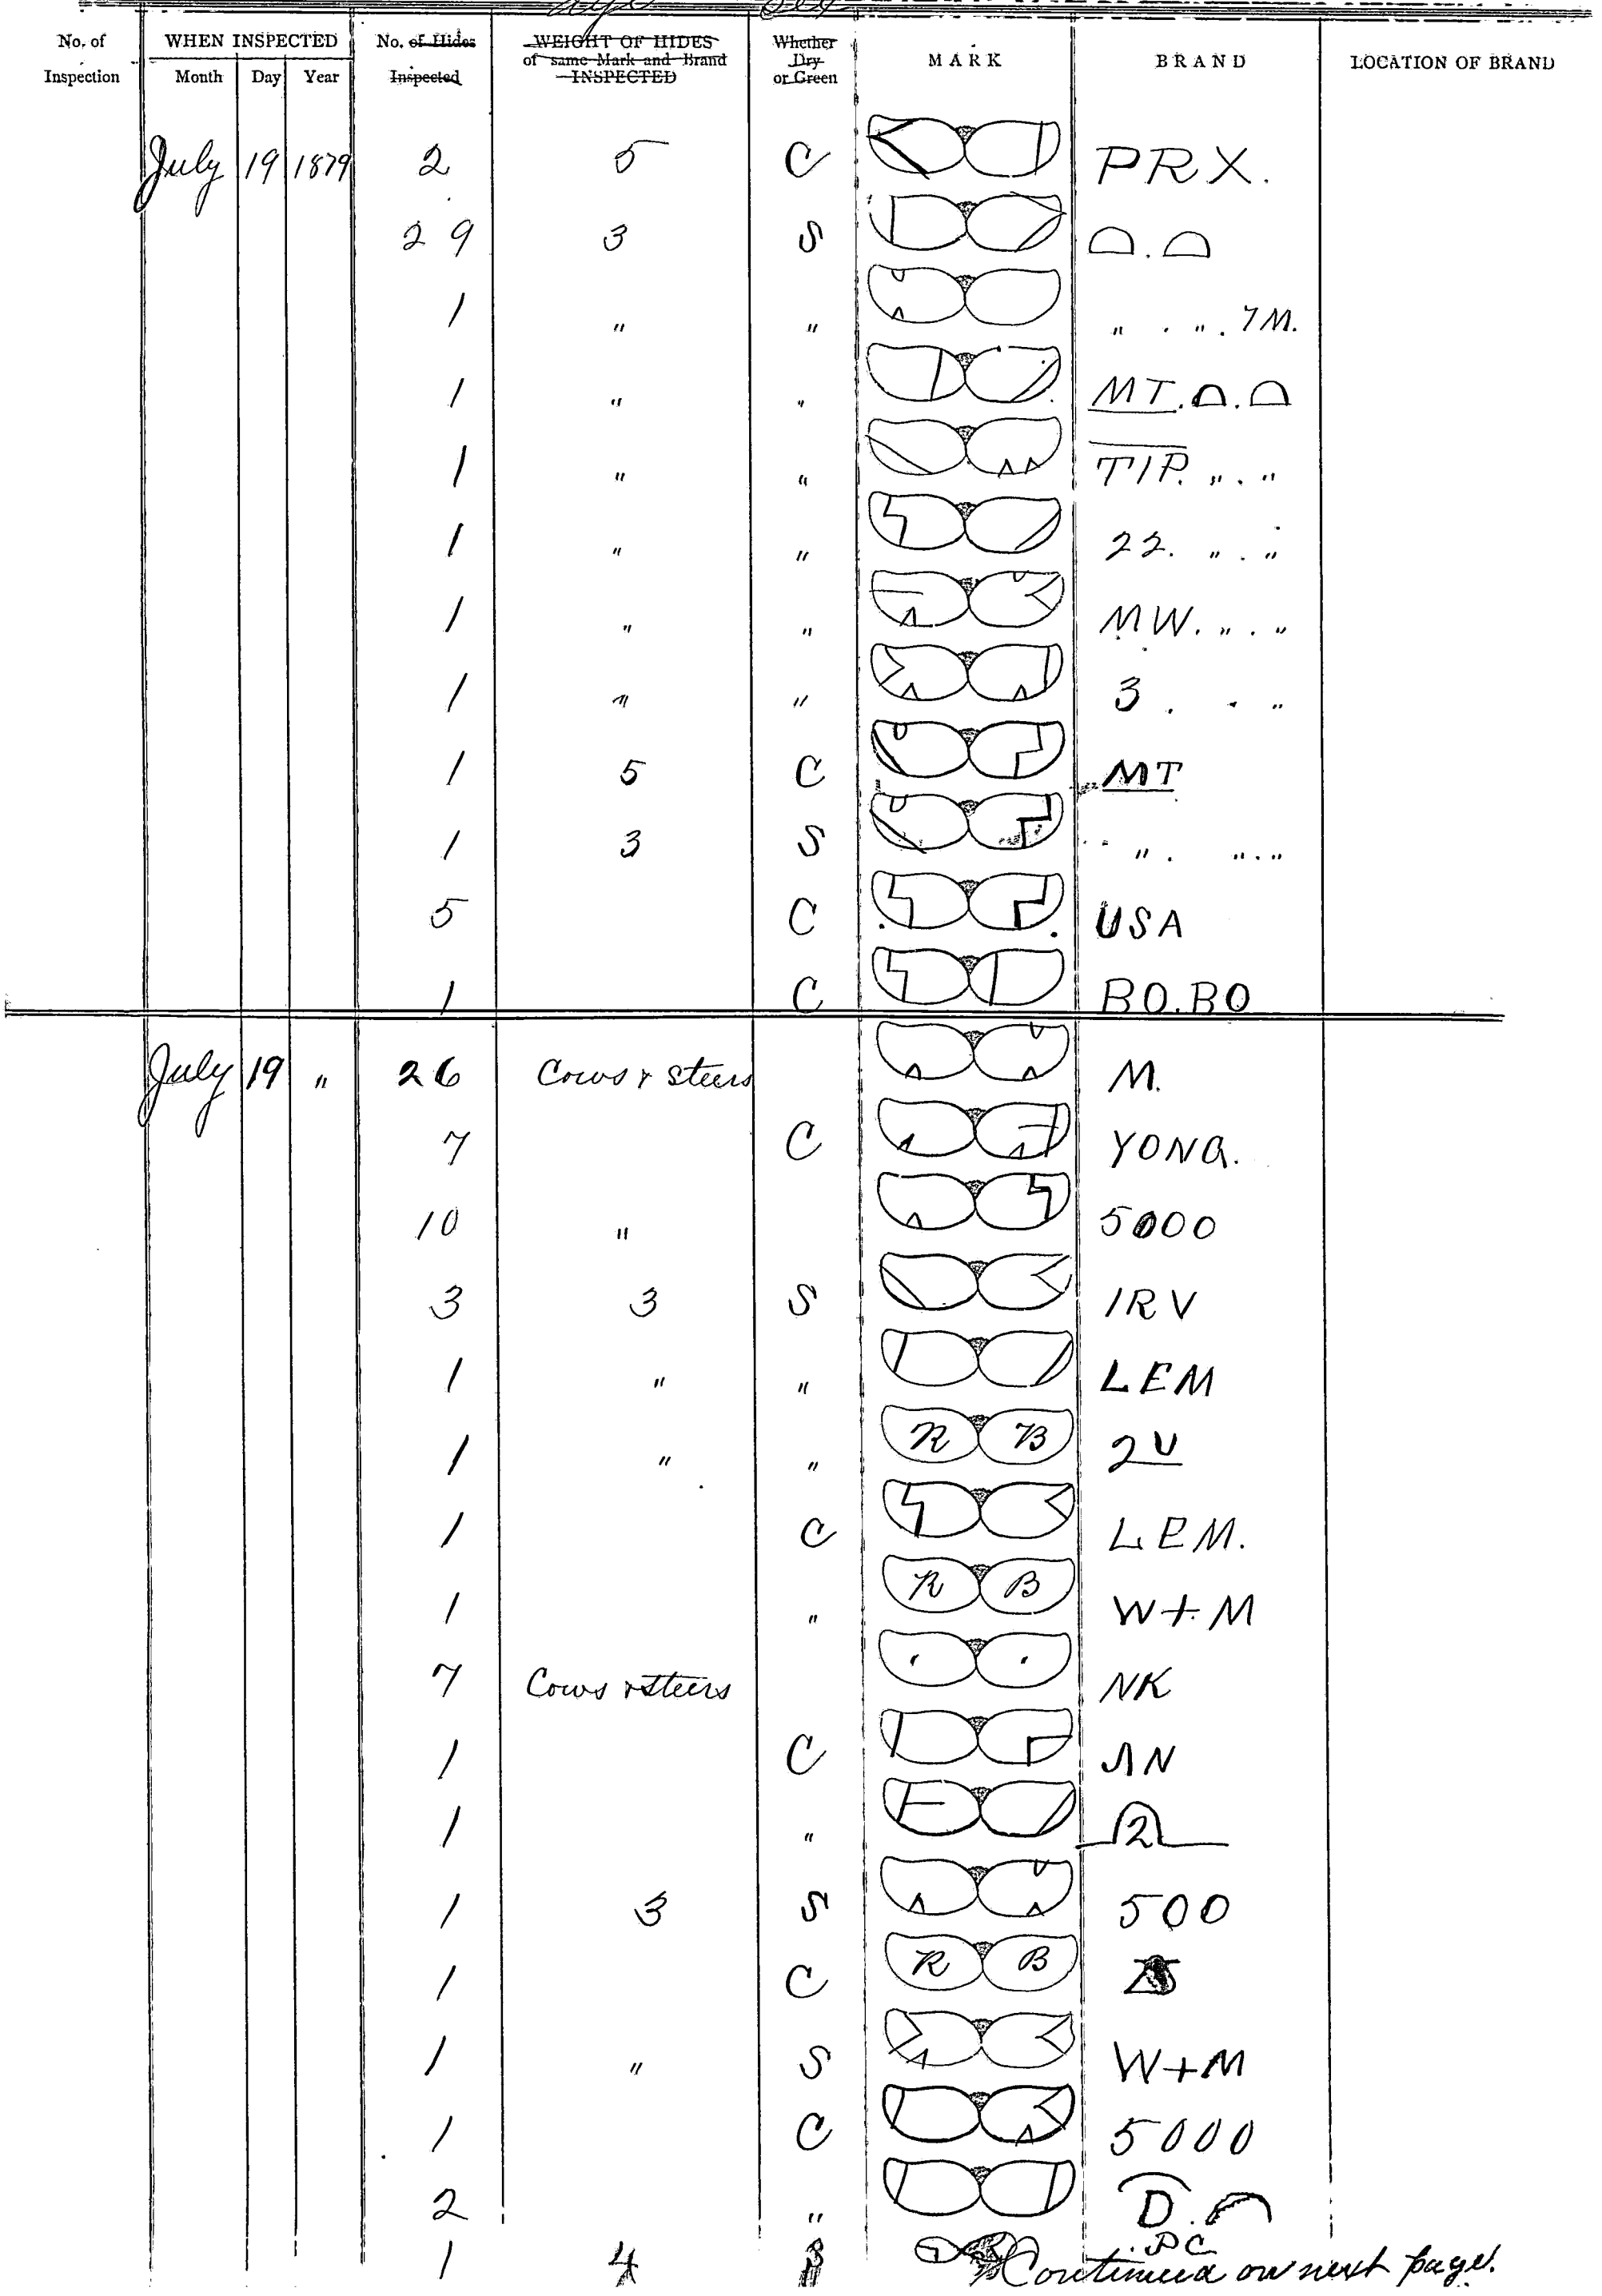 Age Sex
No. of Inspection WHEN INSPECTED Month Day Year No. of Hides Inspected WEIGHT OF HIDES of same Mark and Brand INSPECTED Whether Dry or Green MARK BRAND LOCATION OF BRAND
July 19 1879 2 5 C PRX.
29 3 S
1 " " " . " . 7M.
1 " " MT.
1 " " TIP. " . "
1 " " 22. " . "
1 " " MW. " . "
1 " " 3 . " "
1 5 C MT
1 3 S " . " . "
5 C USA
1 C BO.BO
July 19 " 26 Cows & Steers M.
7 C YONG.
10 " 5000
3 3 S IRV
1 " " LEM
1 " " R B 2U
1 C LEM.
1 " R B W+M
7 Cows & Steers NK
1 C JN
1 " 2
1 3 S 500
1 C R B
1 " S W+M
1 C 5000
2 " D.
1 4 PC
Continued on next page.